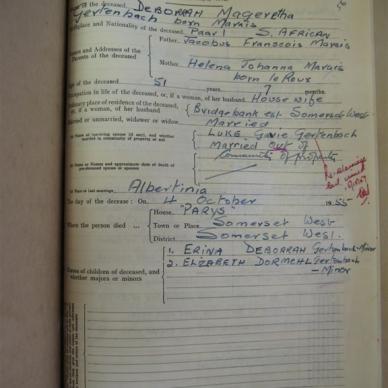 the deceased, DEBORAH Magretha
Gertenbach born Marais
Birthplace and Nationality of the deceased, Paarl S. AFRICAN
Names and Addresses of the Parents of the deceased
Father, Jacobus Franscois Marais
Mother, Helena Johanna Marais
born le Roux
Age of the deceased, 51 years, 7 months.
Occupation in life of the deceased, or, if a woman, of her husband, Housewife
Ordinary place of residence of the deceased, or, if a woman, of her husband, Bridgebank est Somerset West
Married or unmarried, widower or widow Married
LUKE Gavie Gertenbach
Married Out of
Community of property
Place of last marriage, Albertinia
The day of the decease: On, 4 October 1955
Where the person died ...
House, "PARYS"
Town or Place, Somerset West
District, Somerset West.
Names of children of deceased, and whether majors or minors
1. ERINA DEBORRAH Gertenbach-Minor
2. ELIZABETH DORMEHL Gertenbach
— Minor